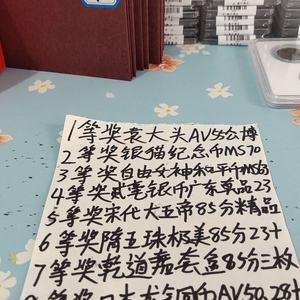 1等奖袁大头AV55公博
2等奖银猫纪念币MS70
3等奖自由女神和平MS63
4等奖贰毫银币广东莫品23
5等奖宋代大五帝85分精品
6等奖隋五珠极美85分23+
7等奖乾道元套盒85分三枚
日本龙银币AV50.28+